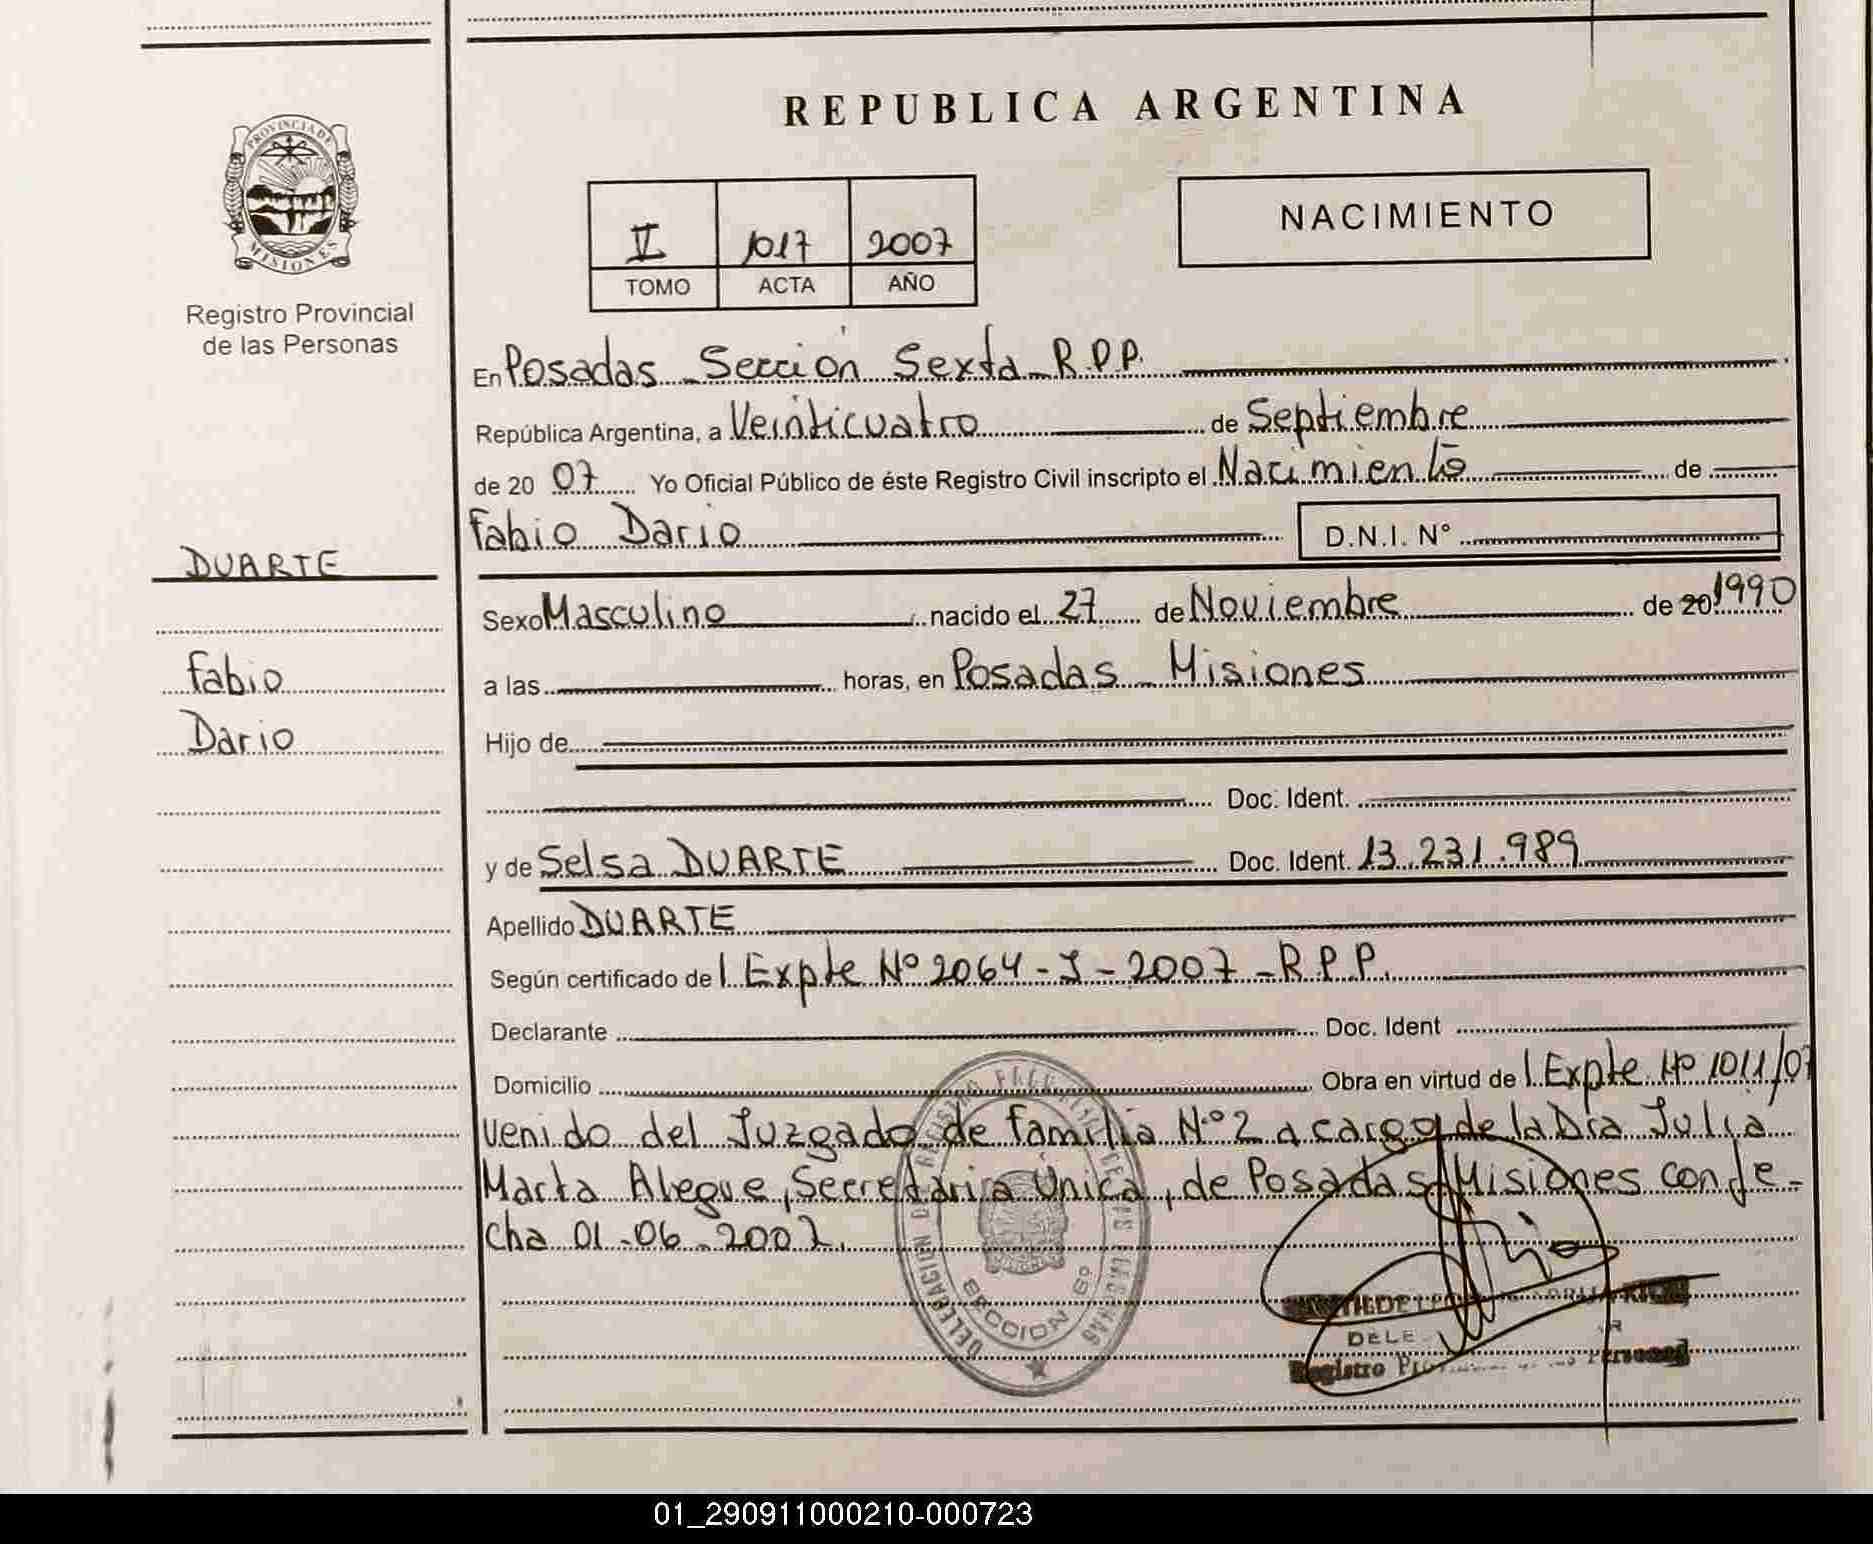 PROVINCIA DE
MISIONES
Registro Provincial
de las Personas
DUARTE
Fabio
Dario
REPUBLICA ARGENTINA
II 1017 2007
TOMO ACTA AÑO
NACIMIENTO
En Posadas - Sección Sexta - R.P.P.
República Argentina, a Veinticuatro de Septiembre
de 20 07 Yo Oficial Público de éste Registro Civil inscripto el Nacimiento de
Fabio Dario D.N.I. N°
Sexo Masculino nacido el 27 de Noviembre de 20 1990
a las horas, en Posadas - Misiones
Hijo de
Doc. Ident.
y de Selsa DUARTE Doc. Ident. 13.231.989
Apellido DUARTE
Según certificado de l Expte Nº 2064-J-2007-R.P.P.
Declarante Doc. Ident
Domicilio Obra en virtud de l Expte Nº 1011/07
venido del Juzgado de familia Nº 2 a cargo de la Dra Julia
Marta Alegre, Secretaria Única, de Posadas Misiones con fe-
cha 01-06-2007.
SECCION 6º
DELE
Registro
01_290911000210-000723